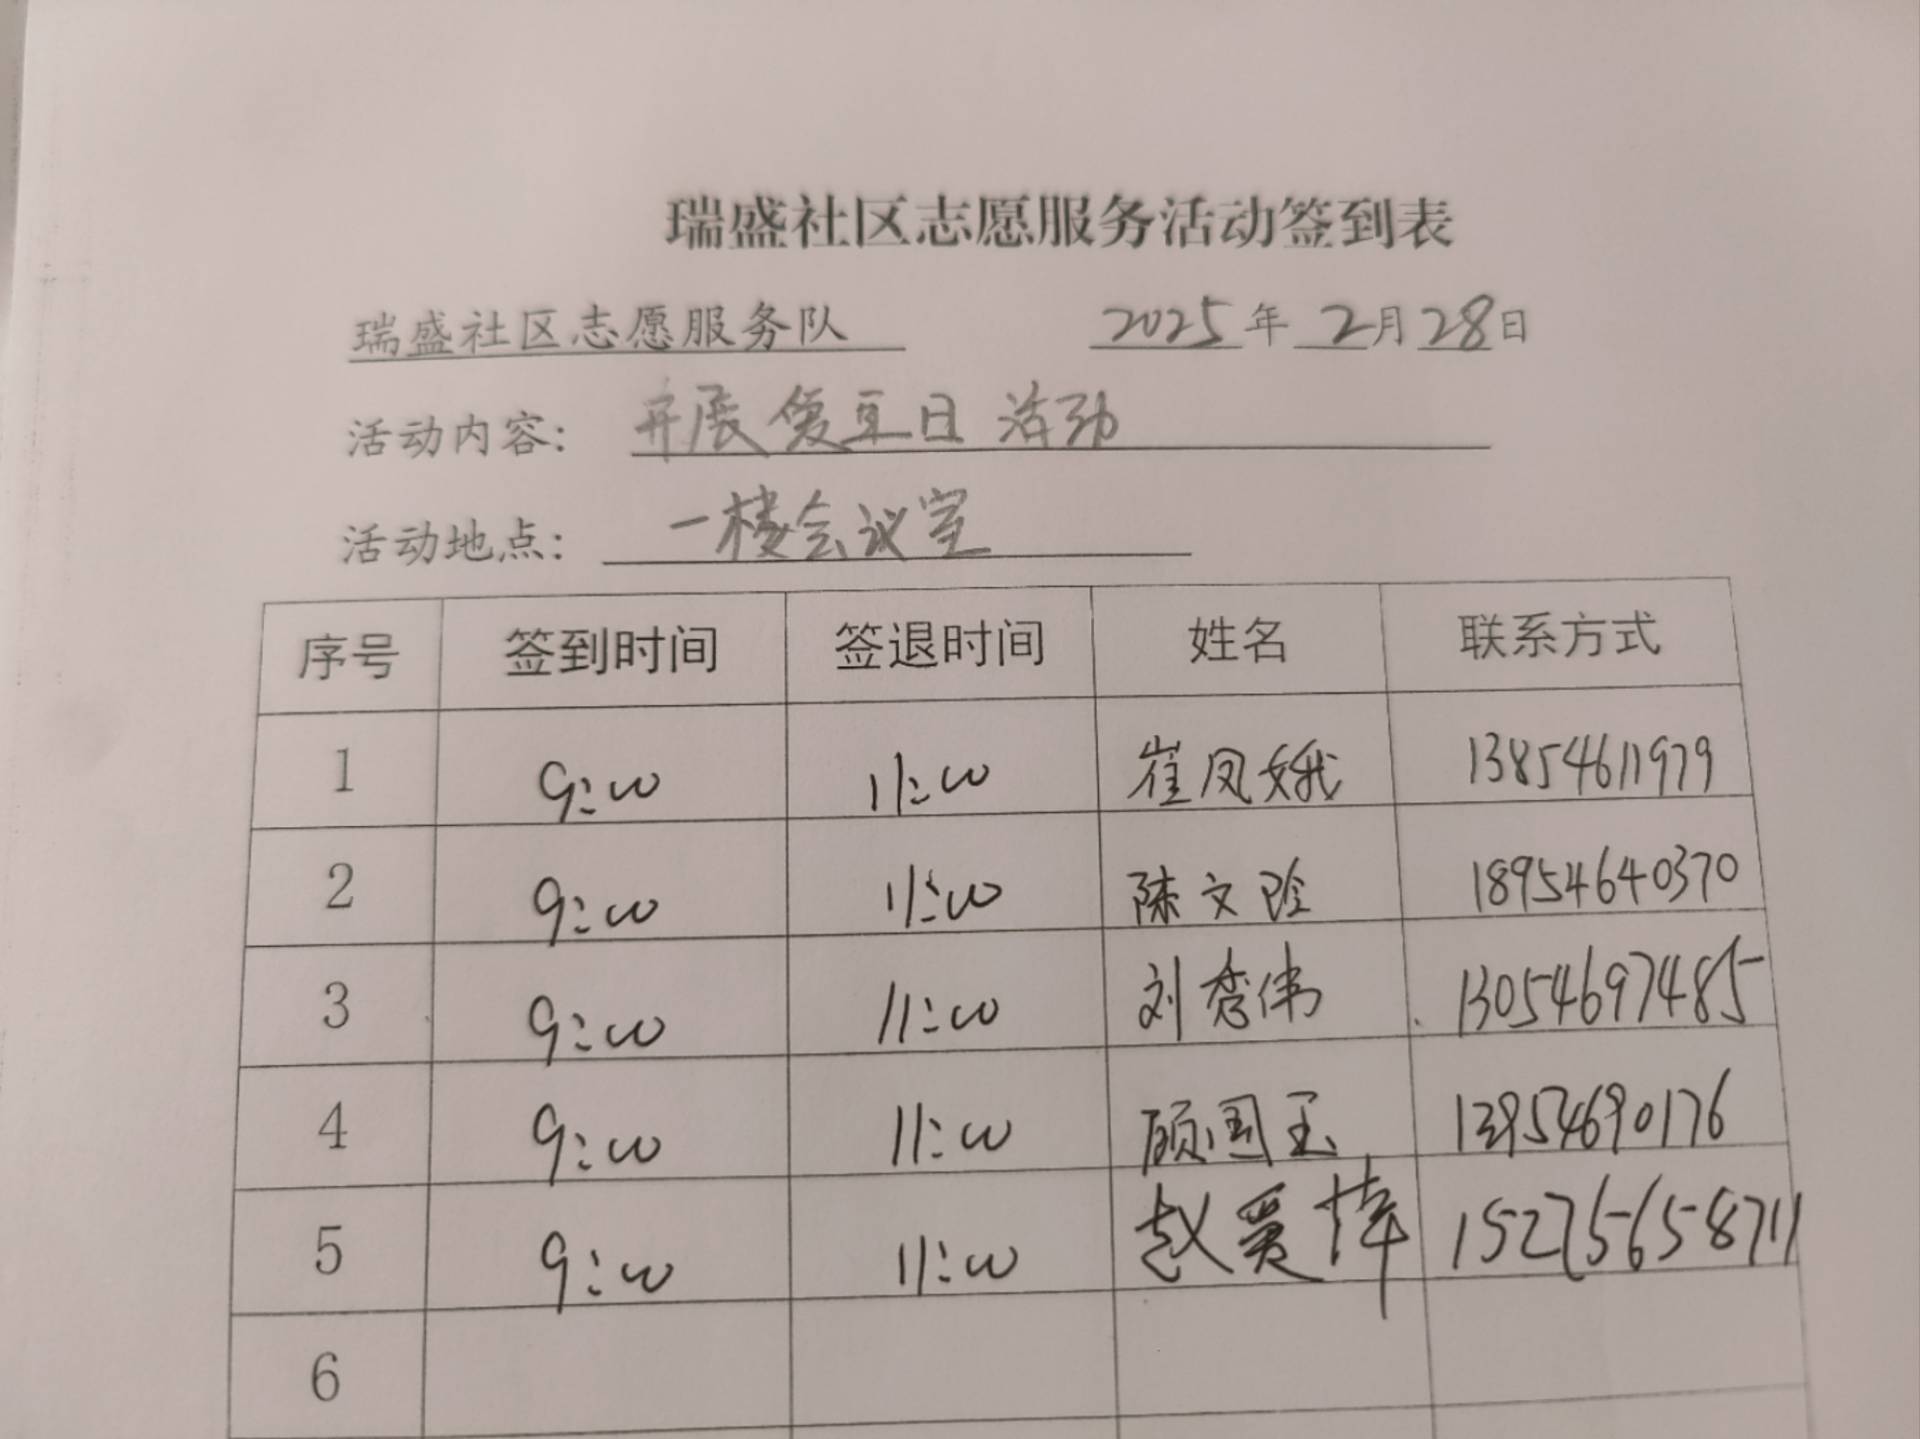 瑞盛社区志愿服务活动签到表
瑞盛社区志愿服务队 2025年 2月28日
活动内容: 开展复豆日活动
活动地点: 一楼会议室
序号 签到时间 签退时间 姓名 联系方式
1 9:00 11:00 崔凤娥 13854611979
2 9:00 11:00 陈文 18954640370
3 9:00 11:00 刘秀伟 13054697485
4 9:00 11:00 顾国玉 13954690176
5 9:00 11:00 赵爱萍 15275658711
6